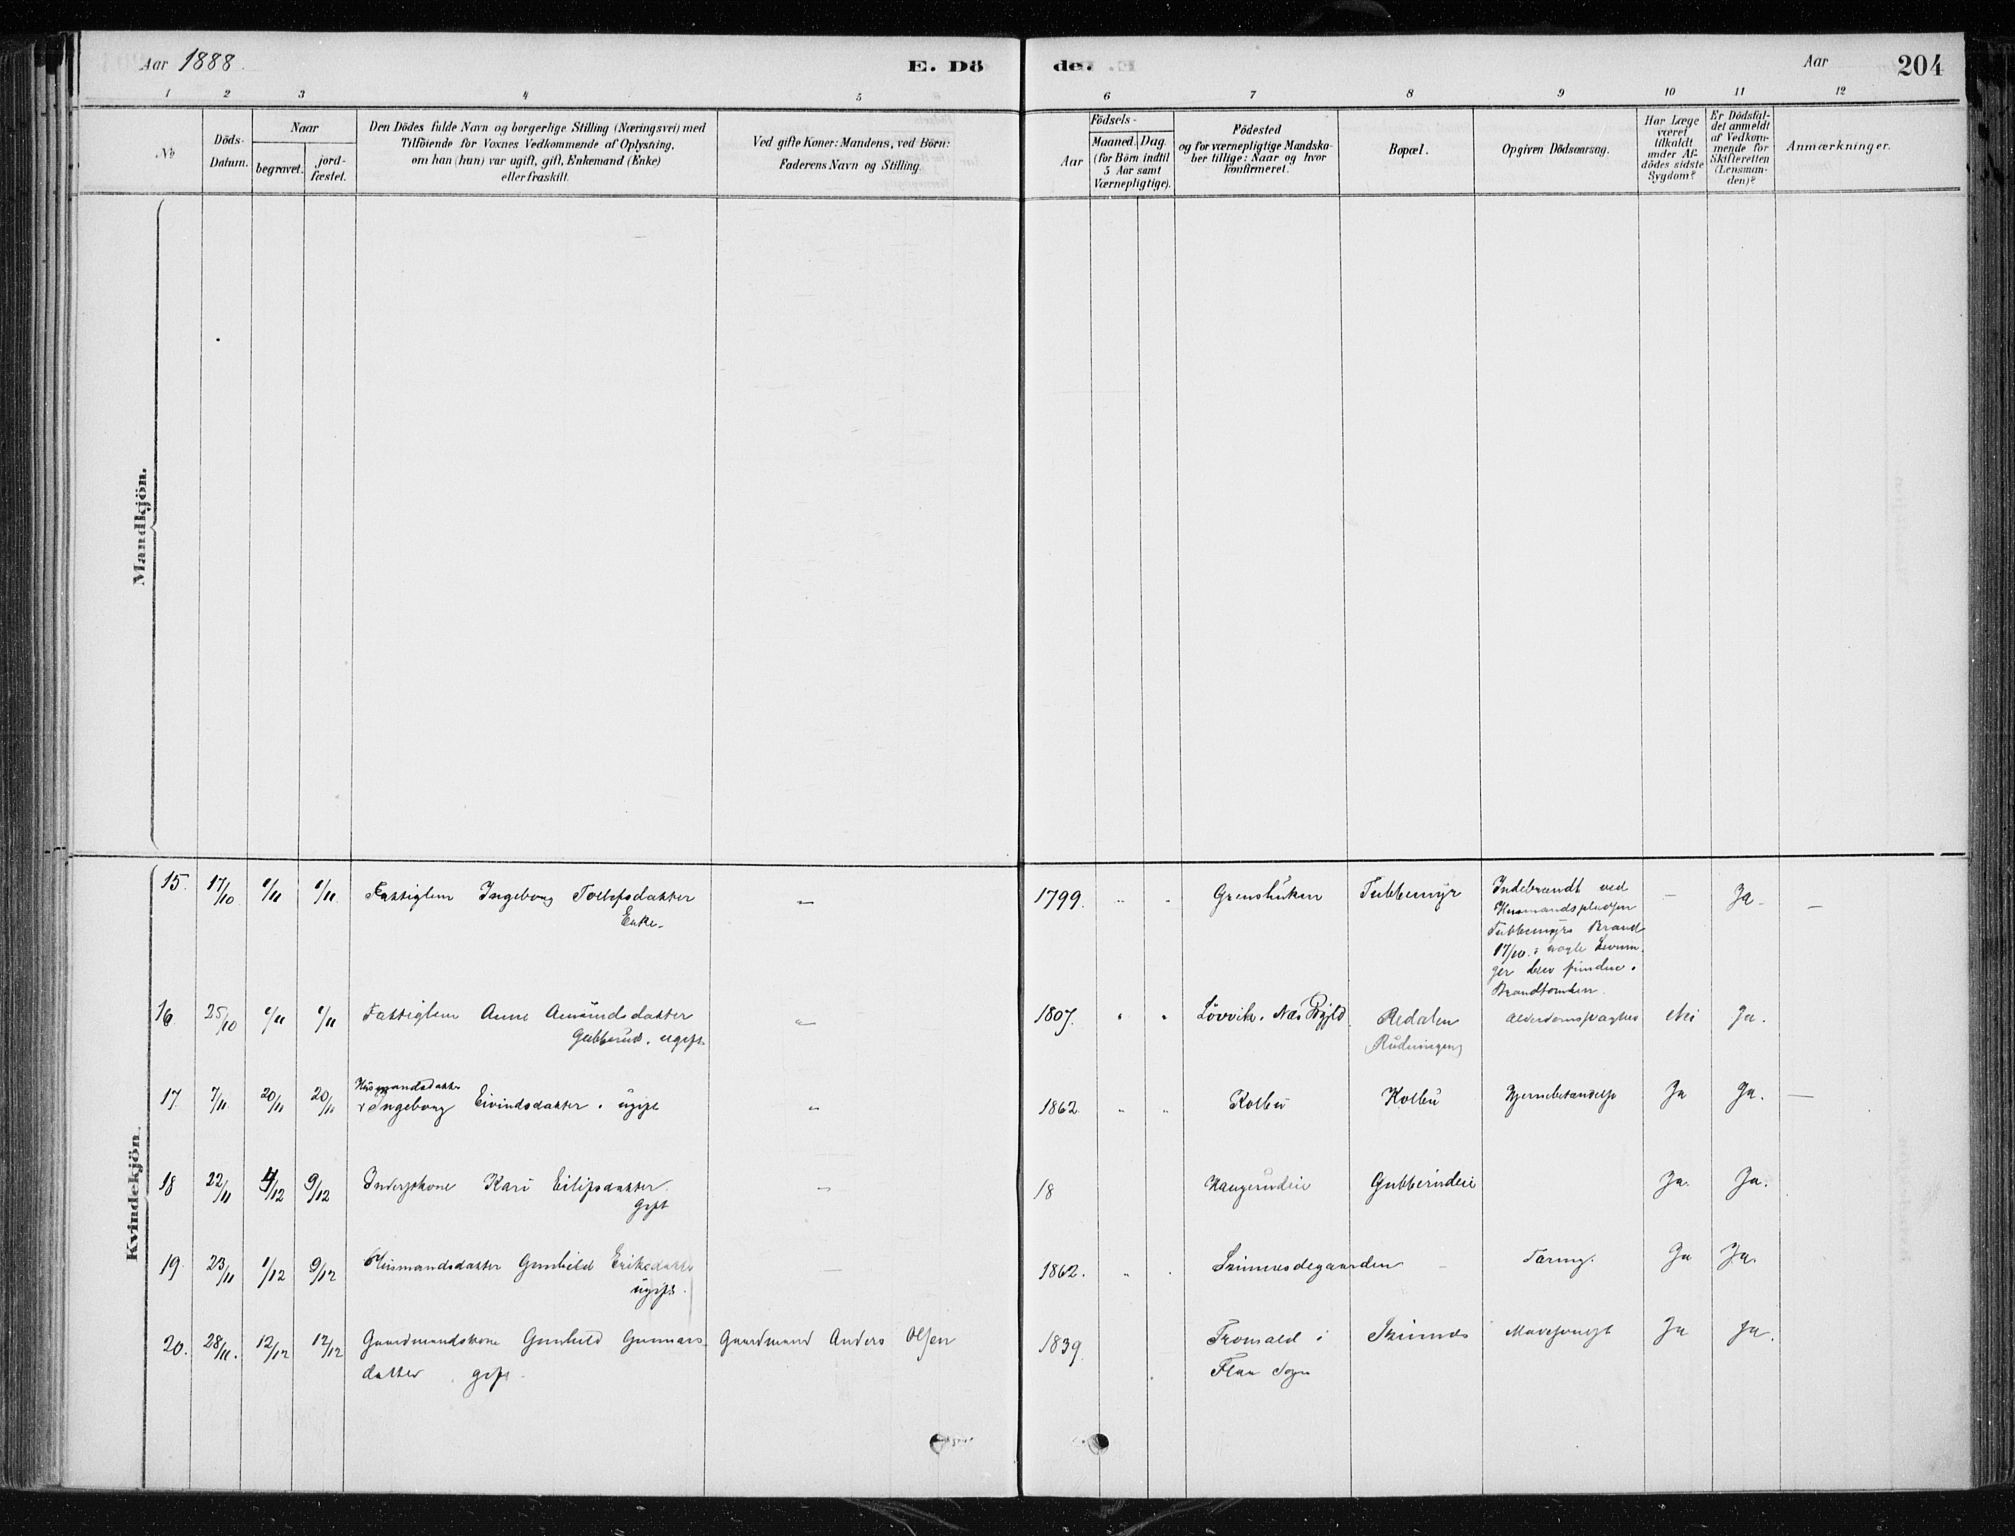 Aar 1888. E. Dö de. Aar 204
1 2 3 4 5 6 7 8 9 10 11 12
No
Döds-
Datum.
Naar
begravet.
jord-
fæstet.
Den Dödes fulde Navn og borgerlige Stilling (Næringsvei) med
Tilföiende for Voxnes Vedkommende af Oplysning,
om han (hun) var ugift, gift, Enkemand (Enke)
eller fraskilt.
Ved gifte Koner: Mandens, ved Börn:
Faderens Navn og Stilling.
Födsels-
Aar
Maaned. Dag
(for Börn indtil
5 Aar samt
Værnepligtige).
Födested
og for værnepligtige Mandska-
ber tillige: Naar og hvor
konfirmeret.
Bopæl.
Opgiven Dödsaarsag.
Har Læge
været
tilkaldt
under Af-
dödes sidste
Sygdom?
Er Dödsfal-
det anmeldt
af Vedkom-
mende for
Skifteretten
(Lensman-
den)?
Anmærkninger.
Mandkjön.
Kvindekjön.
15. 17/10 1/11 1/11 Fattiglem Ingeborg Tollefsdatter
Enke.
— 1799. " " Grenshuken Tubbemyr
Indebrændt ved
Husmandspladsen
Tubbemyrs Brand
17/10. nogle Levnin-
ger blev fundne i
Brandtomten.
— Ja. —
16. 25/10 1/11 1/11 Fattiglem Anne Amundsdatter
Gubberud. ugift
" 1807. " " Lövvik. Næs Redalen
Alderdomssvaghed Nei Ja.
17. 7/11 20/11 20/11 Husmandsdatter
Ingeborg Eivindsdatter. ugift
" 1862. " " Kolbu Kolbu Hjernebetændelse Ja Ja. —
18 22/11 4/12 9/12 Inderstkone Kari Eilifsdatter
Gift
— 18 Haugerudeie Gubberudeie Ja. Ja.
19. 23/11 1/12 9/12 Husmandsdatter Gunhild Eriksdatter
ugift.
— 1862. " " Skinnesdegaarden — Tæring. Ja Ja.
20. 28/11. 12/12 12/12 Gaardmandskone Gunhild Gunnars-
datter. gift.
Gaardmand Anders Olsen 1839. Tromald i
Flaa Sogn
Ja Ja.